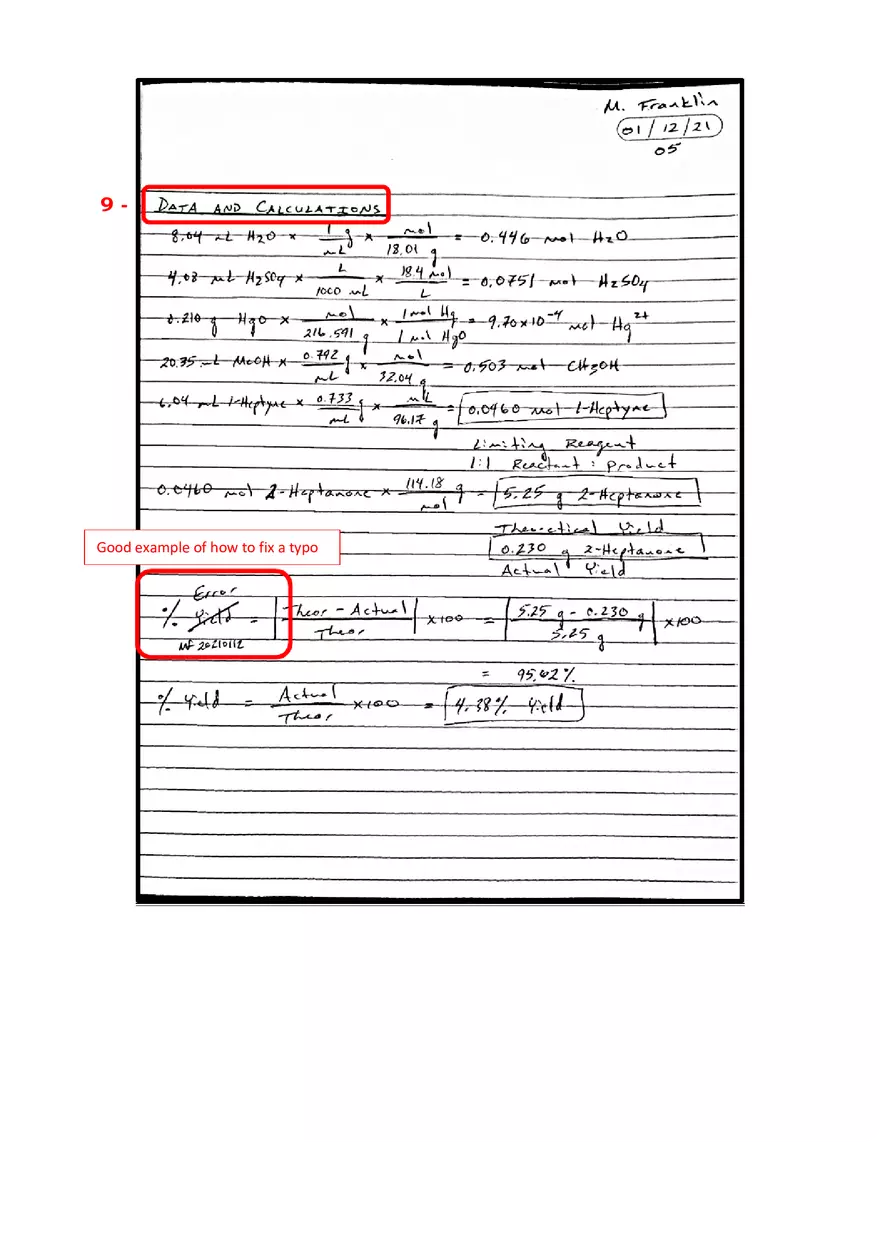 M. Franklin
01/12/21
05
9 - DATA AND CALCULATIONS
8.04 mL H2O × 1 g / mL × mol / 18.01 g = 0.446 mol H2O
4.08 mL H2SO4 × L / 1000 mL × 18.4 mol / L = 0.0751 mol H2SO4
0.210 g HgO × mol / 216.591 g × 1 mol Hg / 1 mol HgO = 9.70×10⁻⁴ mol Hg²⁺
20.35 mL MeOH × 0.792 g / mL × mol / 32.04 g = 0.503 mol CH3OH
6.04 mL 1-Heptyne × 0.733 g / mL × mL / 96.17 g = 0.0460 mol 1-Heptyne
Limiting Reagent
1:1 Reactant : Product
0.0460 mol 2-Heptanone × 114.18 g / mol = 5.25 g 2-Heptanone
Theoretical Yield
Good example of how to fix a typo
0.230 g 2-Heptanone
Actual Yield
Error
% Yield = |Theor - Actual / Theor| ×100 = |5.25 g - 0.230 g / 5.25 g| ×100
MF 20210112
= 95.62%
% Yield = Actual / Theor ×100 = 4.38% Yield